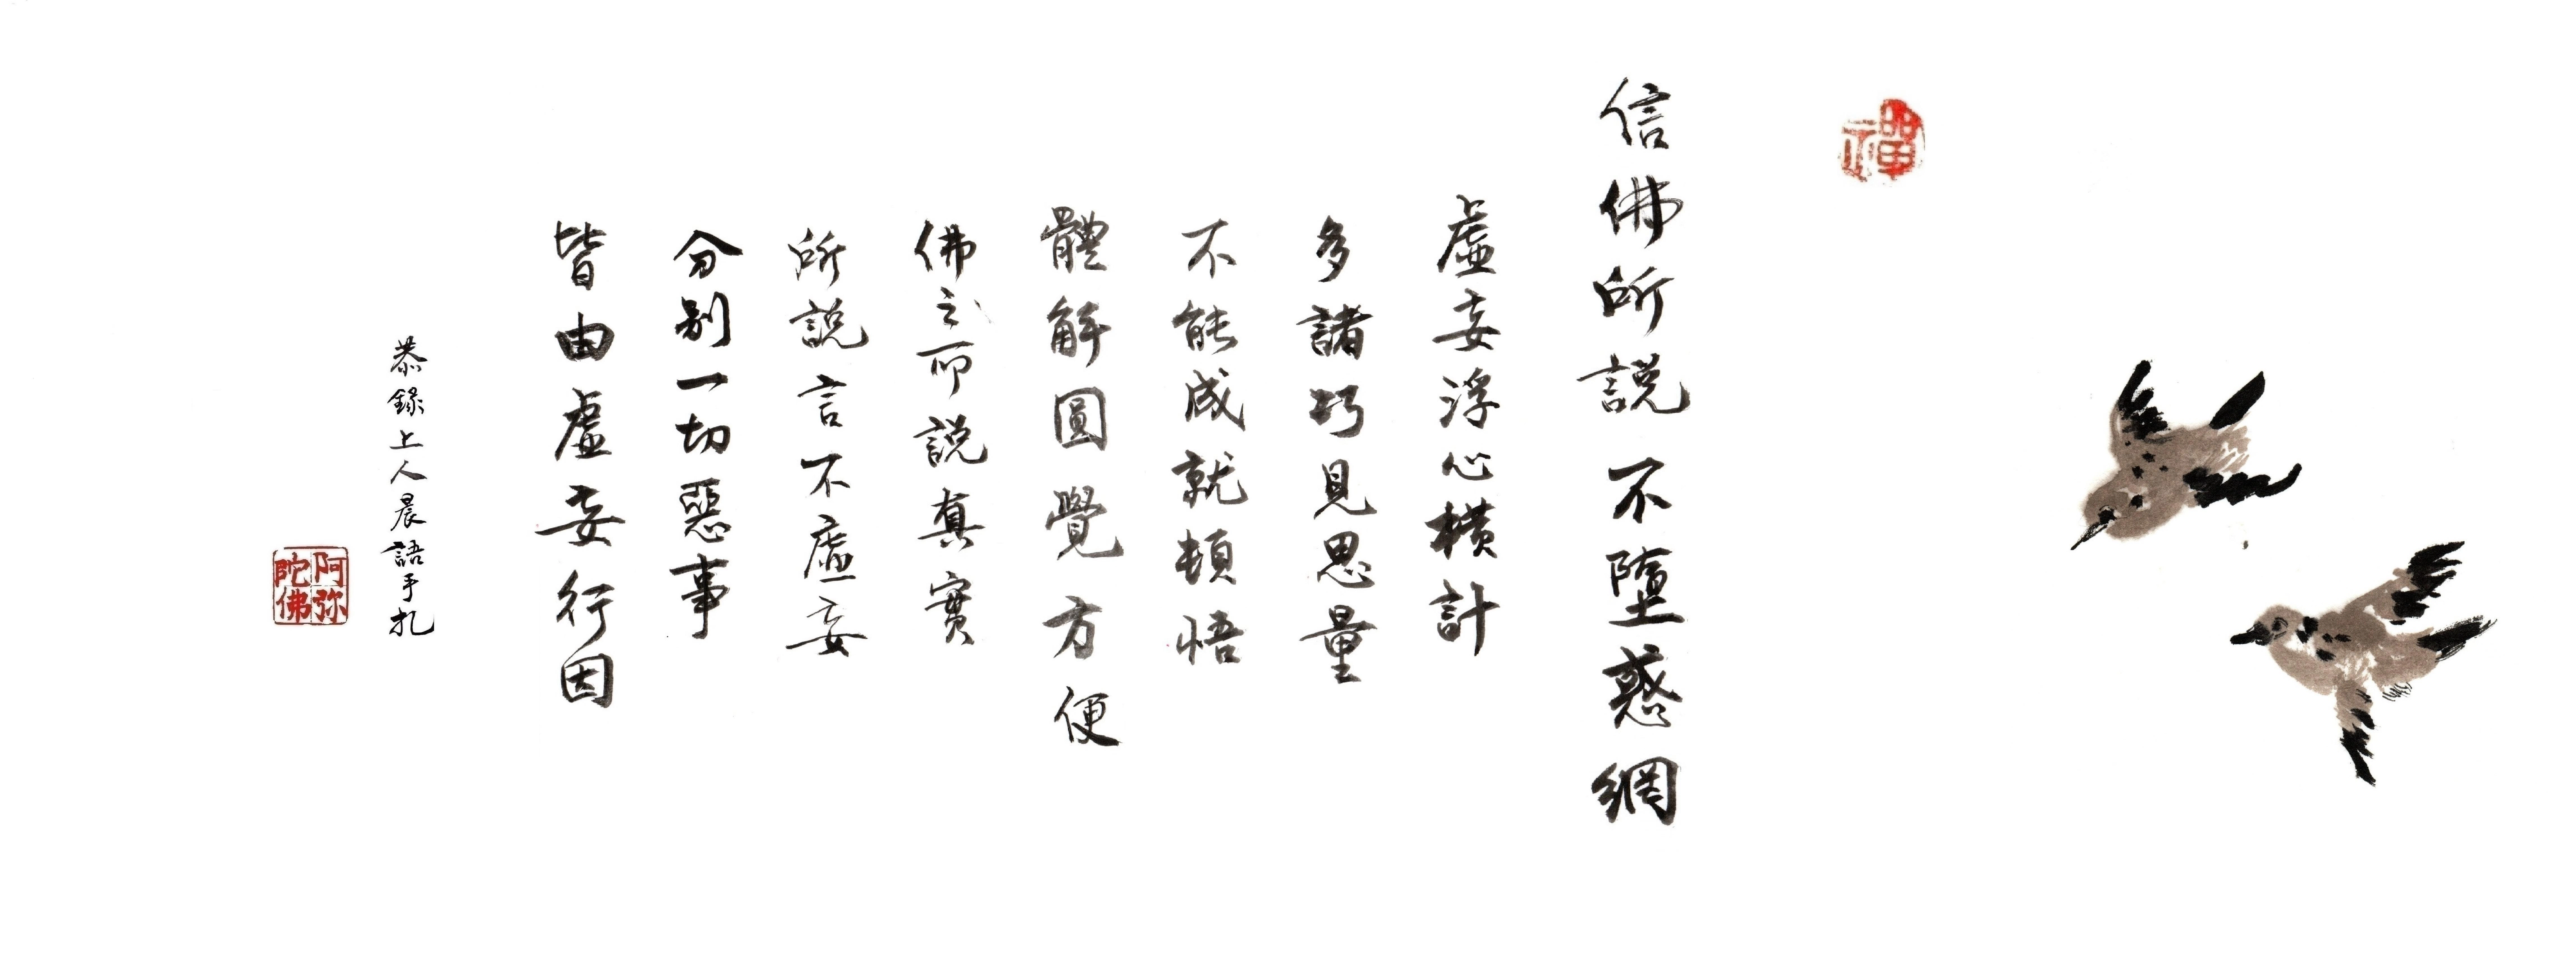 禪
信佛所說不墮惑網
虛妄浮心橫計
多諸巧見思量
不能成就頓悟
體解圓覺方便
佛之所說真實
所說言不虛妄
分別一切惡事
皆由虛妄行因
恭錄上人晨語手札
阿弥
陀佛